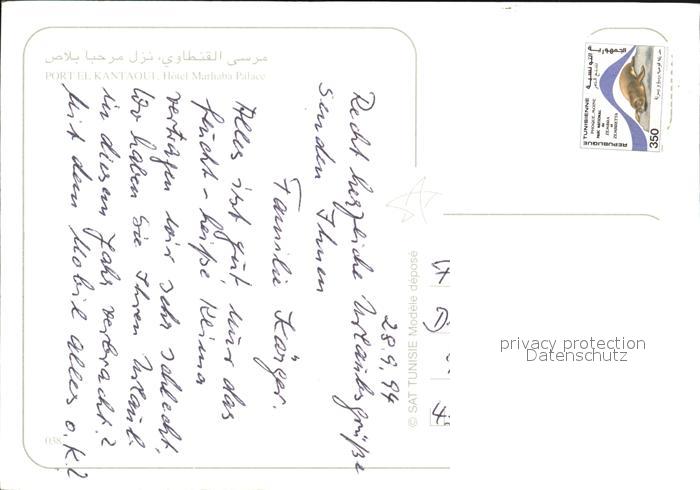 مرسى القنطاوي، نزل مرحبا بلاص
PORT EL KANTAOUI, Hôtel Marhaba Palace
28.9.94
Recht herzliche Urlaubsgrüße
senden Ihnen
Familie Karger.
Alles ist gut nur das
feucht-heiße Klima
vertragen wir sehr schlecht.
Wo haben Sie Ihren Urlaub
in diesem Jahr verbracht?
Mit dem Mobil alles o.K.?
© SAT TUNISIE Modèle déposé
038
الجمهورية التونسية
REPUBLIQUE TUNISIENNE
PHOQUE MOINE
PARC NATIONAL
DE
ZEMBRA
ET
ZEMBRETTA
350
privacy protection
Datenschutz